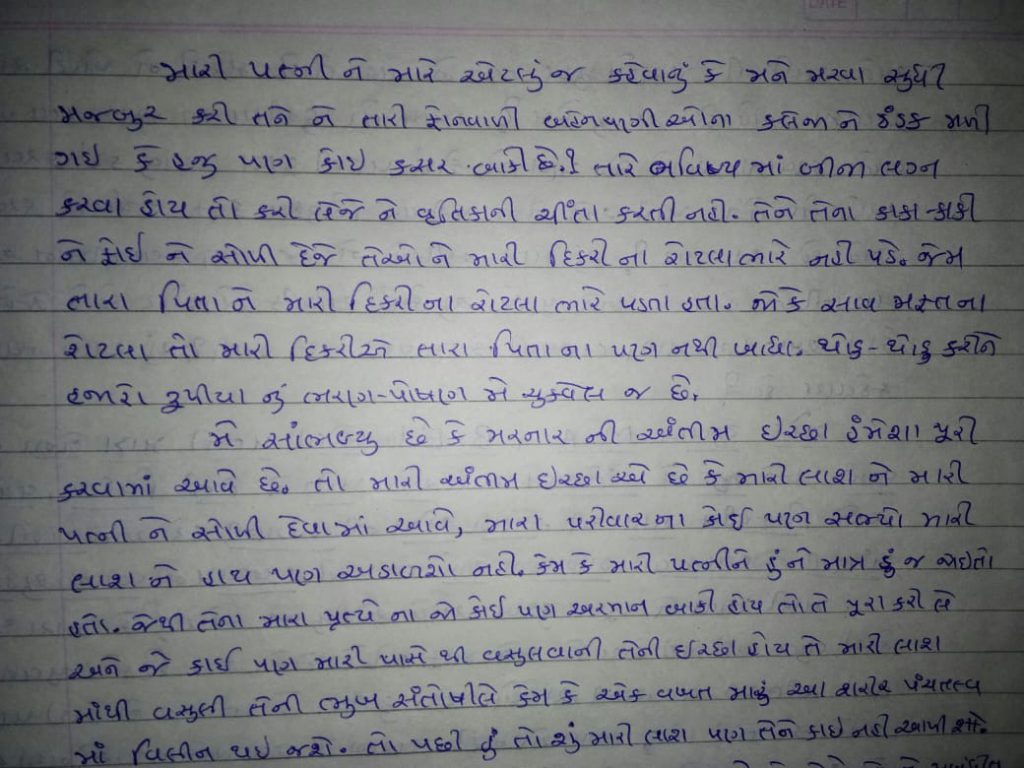 DATE
મારી પત્ની ને મારે એટલું જ કહેવાનું કે મને મરવા સુધી
મજબુર કરી તને ને તારી ફોનવાળી બહેનપાણીઓના કલેજા ને ઠંડક મળી
ગઇ કે હજુ પણ કોઇ કસર બાકી છે.? તારે ભવિષ્ય માં બીજા લગ્ન
કરવા હોય તો કરી લેજે ને વૃતિકાની ચીંતા કરતી નહી. તેને તેના કાકા-કાકી
ને ફોઇ ને સોપી દેજે તેઓ ને મારી દિકરી ના રોટલા ભારે નહી પડે. જેમ
તારા પિતા ને મારી દિકરી ના રોટલા ભારે પડતા હતા. જો કે સાવ મફત ના
રોટલા તો મારી દિકરીએ તારા પિતા ના પણ નથી ખાધા. થોડુ-થોડુ કરીને
હજારો રૂપીયા નું ભરાણ-પોષાણ મે ચુકવેલ જ છે.
મે સાંભળ્યુ છે કે મરનાર ની અંતીમ ઇચ્છા હંમેશા પૂરી
કરવામાં આવે છે. તો મારી અંતીમ ઇચ્છા એ છે કે મારી લાશ ને મારી
પત્ની ને સોપી દેવામાં આવે, મારા પરીવાર ના કોઇ પણ સભ્યો મારી
લાશ ને હાથ પણ અડાળશો નહી. કેમ કે મારી પત્નીને હું ને માત્ર હું જ જોઇતો
હતો. જેથી તેના મારા પ્રત્યે ના જે કોઇ પણ અરમાન બાકી હોય તો તે પૂરા કરી લે
અને જે કાઇ પણ મારી પાસે થી વસુલવાની તેની ઇચ્છા હોય તે મારી લાશ
માંથી વસુલી તેની ભુખ સંતોષીલે કેમ કે એક વખત મારૂ આ શરીર પંચતત્વ
માં વિલીન થઇ જશે. તો પછી હું તો શું મારી લાશ પણ તેને કાઇ નહી આપી શકે.